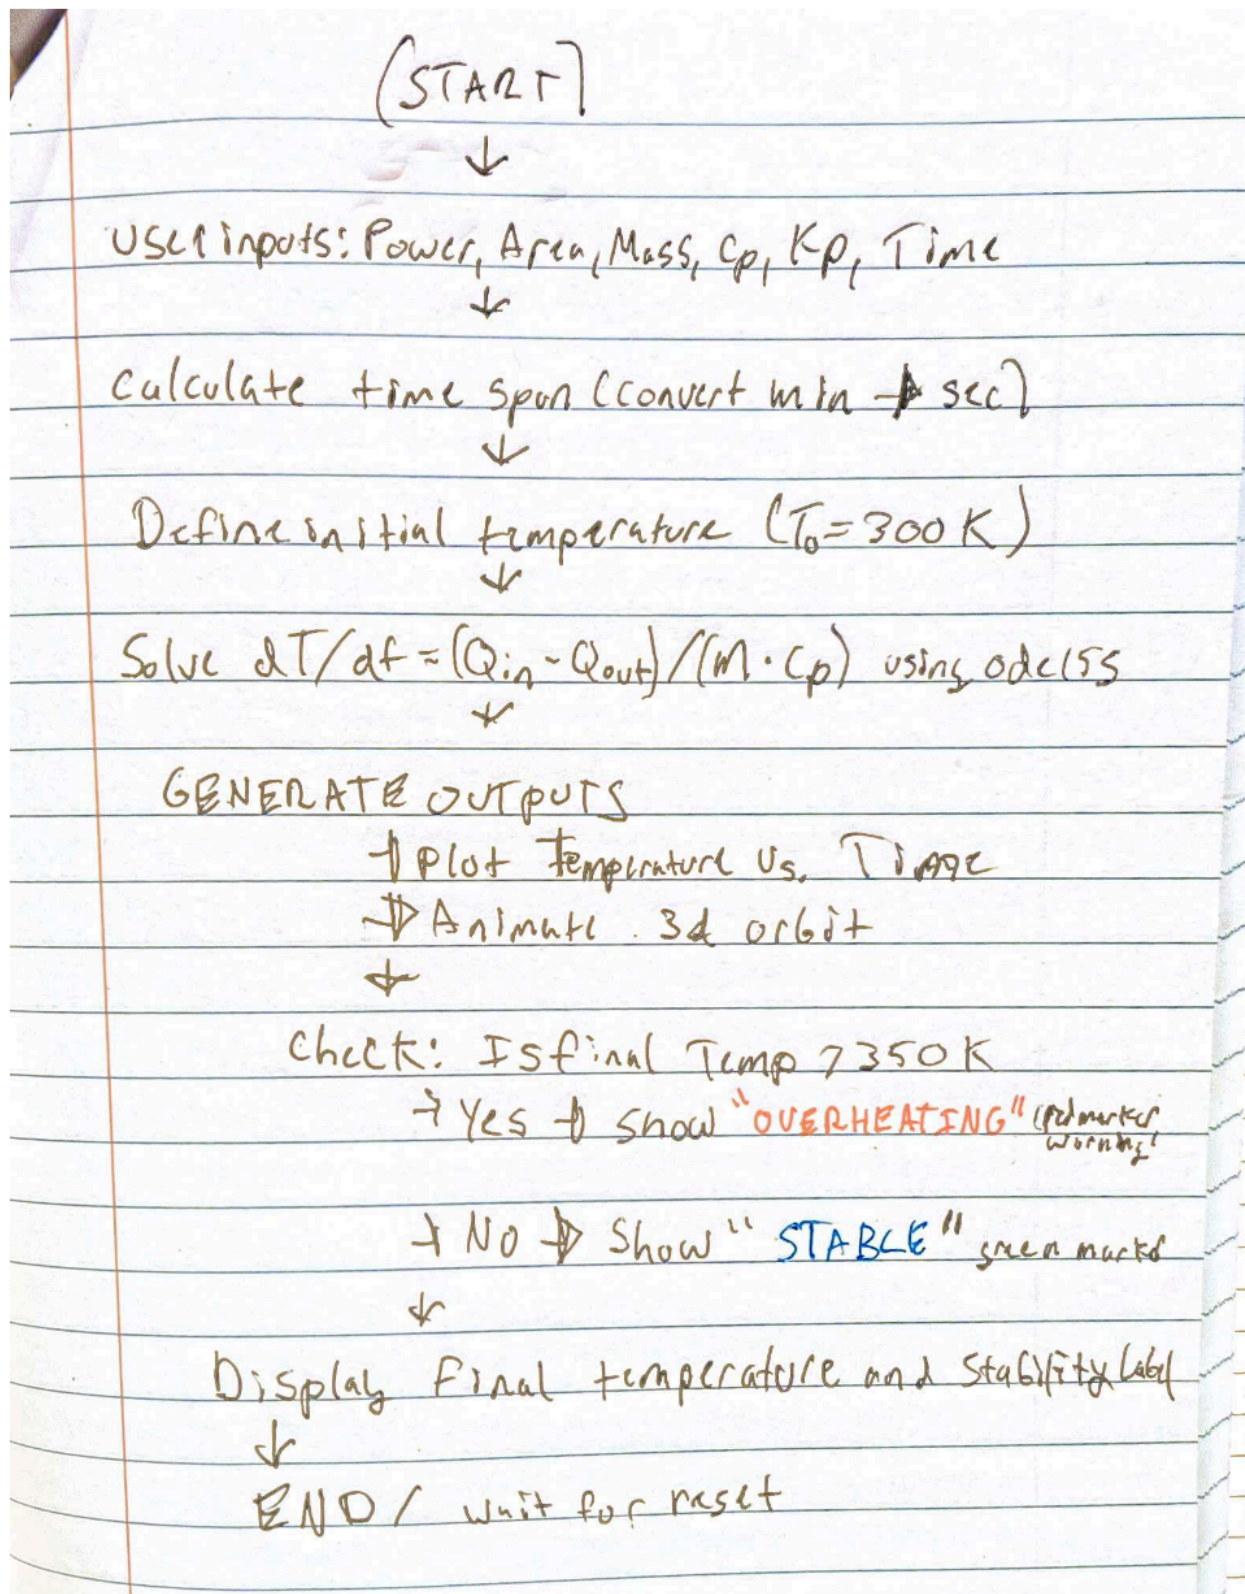 (START)
↓
User inputs: Power, Area, Mass, Cp, Kp, Time
↓
Calculate time span (convert min → sec)
↓
Define initial temperature (T₀ = 300 K)
↓
Solve dT/dt = (Qin - Qout)/(m · Cp) using ode15s
↓
GENERATE OUTPUTS
→ Plot Temperature vs. Time
→ Animate 3d orbit
↓
Check: Is final Temp > 350 K
→ Yes → show "OVERHEATING" (red marker
warning)
→ No → Show "STABLE" green marker
↓
Display Final temperature and Stability Label
↓
END / wait for reset